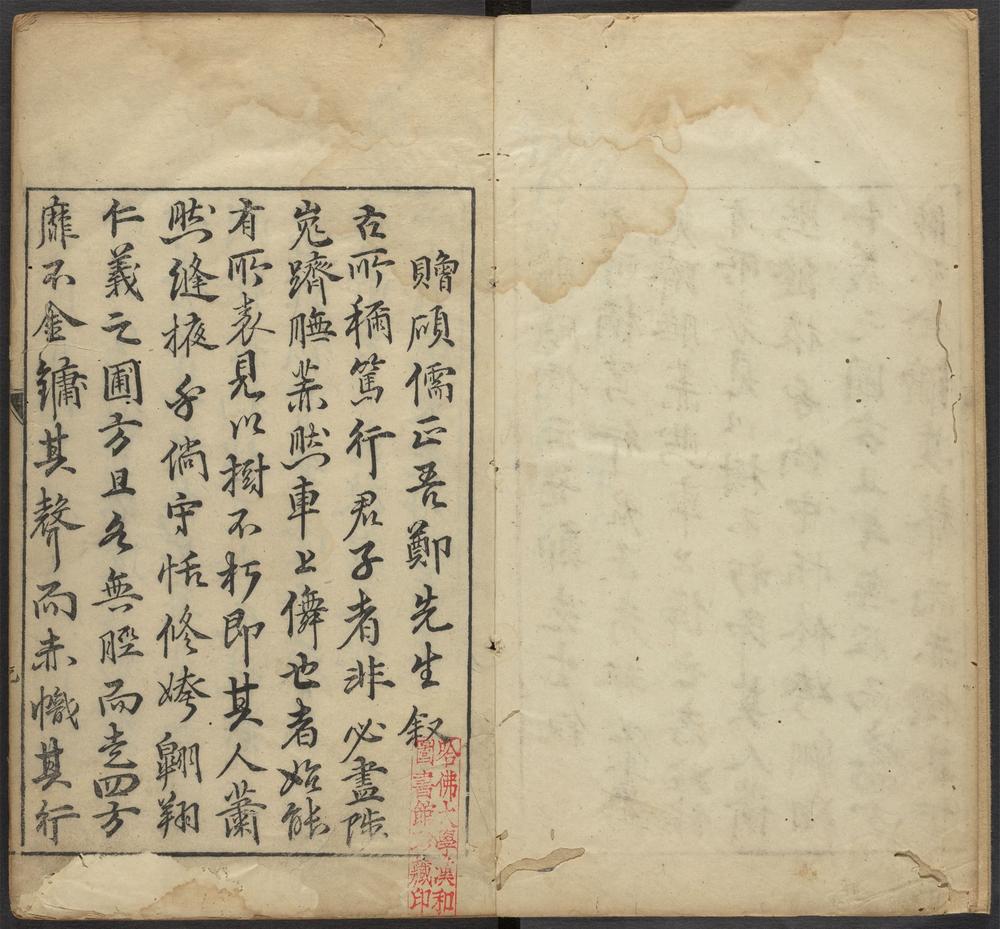 贈碩儒正吾鄭先生叙
古所稱篤行君子者非必盡陟
嵬躋膴業然車上儛也者始能
有所表見以樹不朽即其人蕭
然縫掖乎倘守恬修姱翱翔
仁義之圃方且名無脛而走四方
靡不金鏞其聲而赤幟其行
哈佛大學漢和
圖書館珍藏印